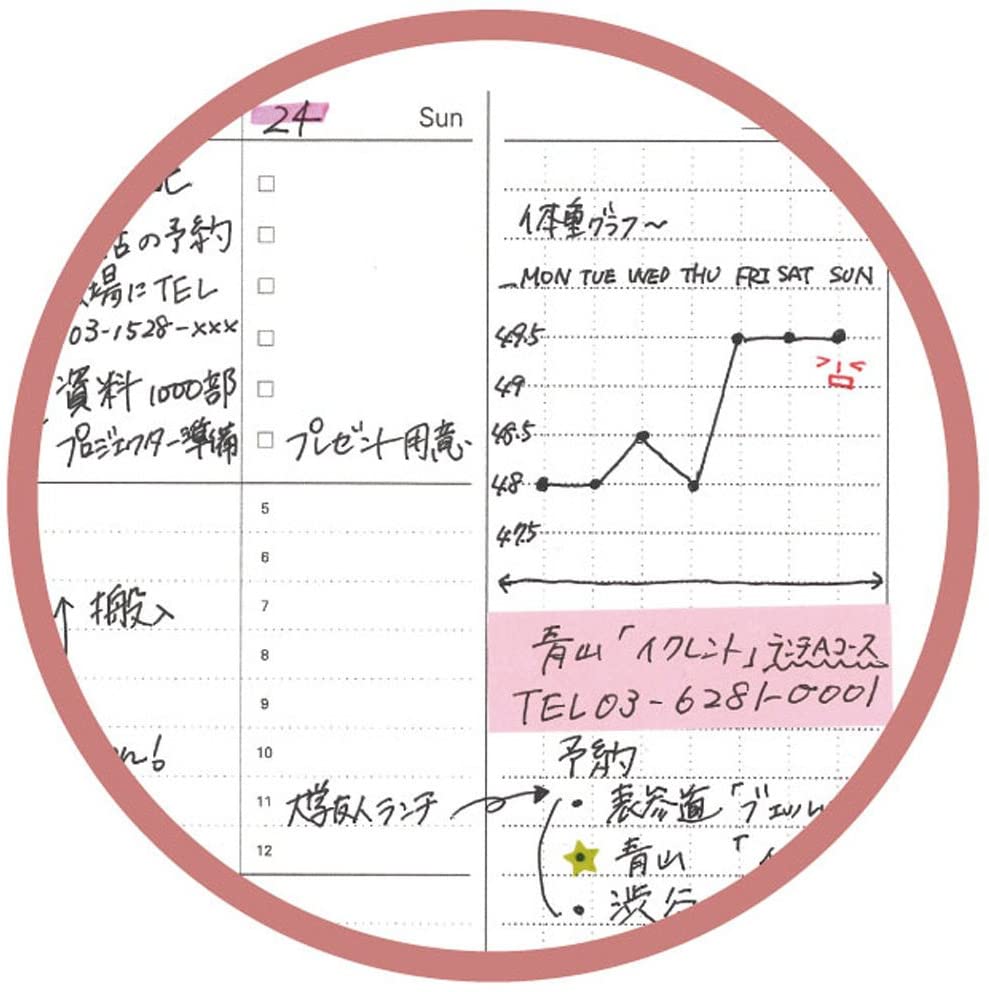 の予約
場にTEL
03-1528-xxx
資料1000部
プロジェクター準備
搬入
24 Sun
プレゼント用意
5
6
7
8
9
10
11 大学友人ランチ
12
体重グラフ～
MON TUE WED THU FRI SAT SUN
49.5
49
48.5
48
47.5
青山「イクレント」ランチAコース
TEL 03-6281-0001
予約
・表参道「ブェル
青山 「イ
・渋谷